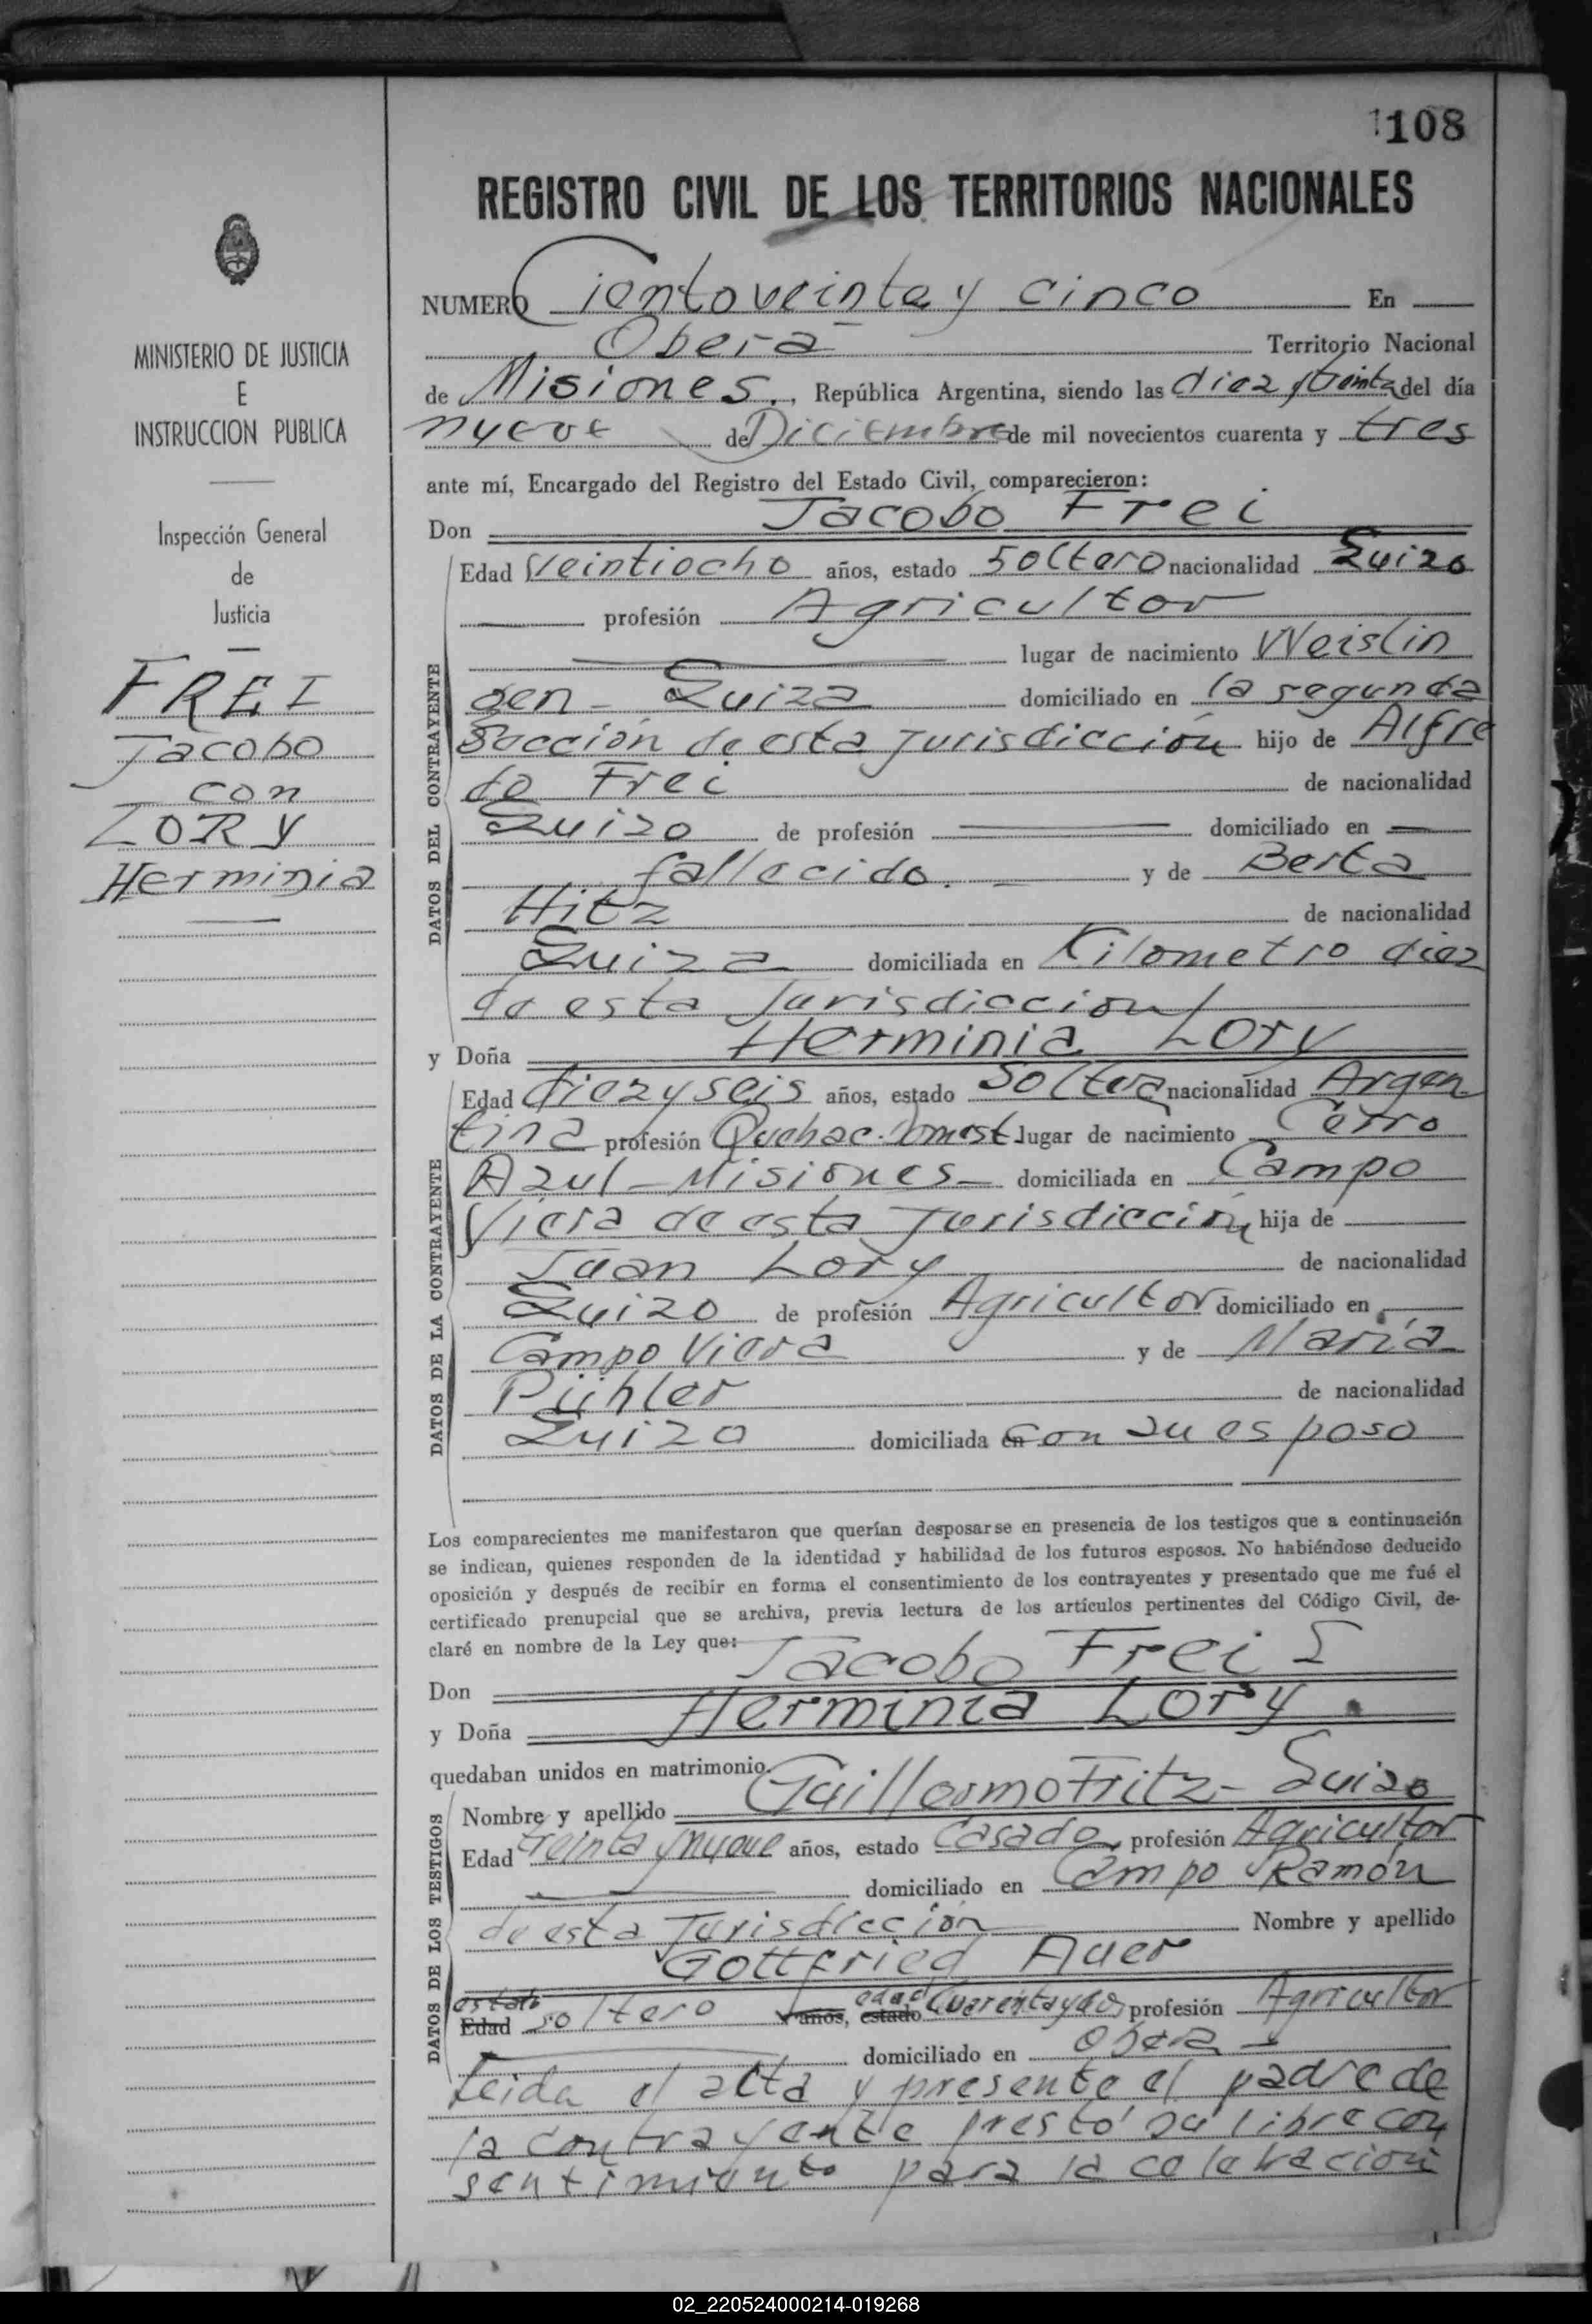 108
REGISTRO CIVIL DE LOS TERRITORIOS NACIONALES
MINISTERIO DE JUSTICIA
E
INSTRUCCION PUBLICA
Inspección General
de
Justicia
FREI
Jacobo
con
LORY
Herminia
NUMERO Cientoveinte y cinco En
Oberá Territorio Nacional
de Misiones., República Argentina, siendo las diez y treinta del día
nueve de Diciembre de mil novecientos cuarenta y tres
ante mí, Encargado del Registro del Estado Civil, comparecieron:
Don Jacobo Frei
DATOS DEL CONTRAYENTE
Edad Veintiocho años, estado Soltero nacionalidad Suizo
profesión Agricultor
lugar de nacimiento Weislin
gen - Suiza domiciliado en la segunda
Sección de esta Jurisdicción hijo de Alfre
do Frei de nacionalidad
Suizo de profesión domiciliado en
fallecido. y de Berta
Hitz de nacionalidad
Suiza domiciliada en Kilometro diez
de esta Jurisdiccion
y Doña Herminia Lory
DATOS DE LA CONTRAYENTE
Edad diez y seis años, estado Soltera nacionalidad Argen
tina profesión Quehac. Domest. lugar de nacimiento Cerro
Azul - Misiones - domiciliada en Campo
Viera de esta Jurisdicción hija de
Juan Lory de nacionalidad
Suizo de profesión Agricultor domiciliado en
Campo Viera y de María
Pühler de nacionalidad
Suizo domiciliada en con su esposo
Los comparecientes me manifestaron que querían desposarse en presencia de los testigos que a continuación
se indican, quienes responden de la identidad y habilidad de los futuros esposos. No habiéndose deducido
oposición y después de recibir en forma el consentimiento de los contrayentes y presentado que me fué el
certificado prenupcial que se archiva, previa lectura de los artículos pertinentes del Código Civil, de-
claré en nombre de la Ley que:
Don Jacobo Frei
y Doña Herminia Lory.
quedaban unidos en matrimonio.
DATOS DE LOS TESTIGOS
Nombre y apellido Guillermo Fritz - Suizo
Edad treinta y nueve años, estado Casado profesión Agricultor
domiciliado en Campo Ramón
de esta Jurisdicción Nombre y apellido
Gottfried Auer
estado edad
Edad soltero años, estado Cuarenta y dos profesión Agricultor
domiciliado en Oberá
Leida el acta y presente el padre de
la contrayente prestó su libre con
sentimiento para la celebración
02_220524000214-019268